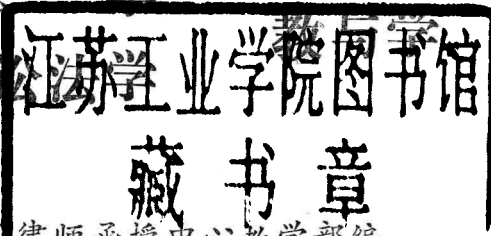 江苏工业学院图书馆
藏书章
律师函授中心教学部编